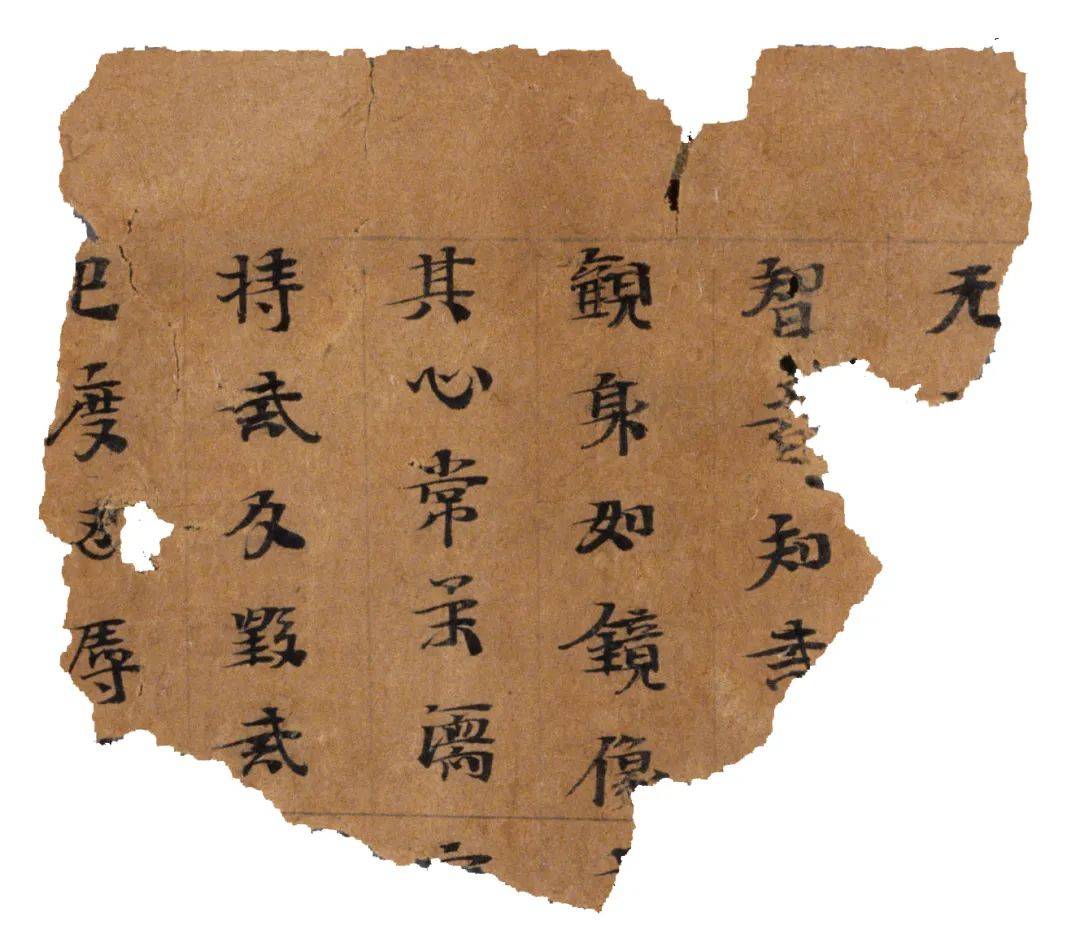 无
智知
觀身如鏡像
其心常柔濡
持戒及毀戒
已度忍辱